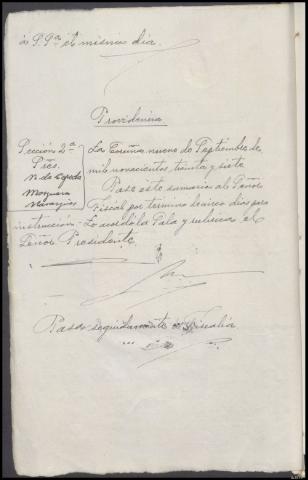 á S. Sª el mismo dia.
Providencia
Sección 2ª
Pres.
N. de Cepeda
Mosquera
Naranjos
La Coruña nueve de Septiembre de
mil novecientos treinta y siete
Pase este sumario al Señor
Fiscal por termino de cinco dias para
instrucción. Lo acordó la Sala y rubrica el
Señor Presidente.
Pasado seguidamente a Fiscalia